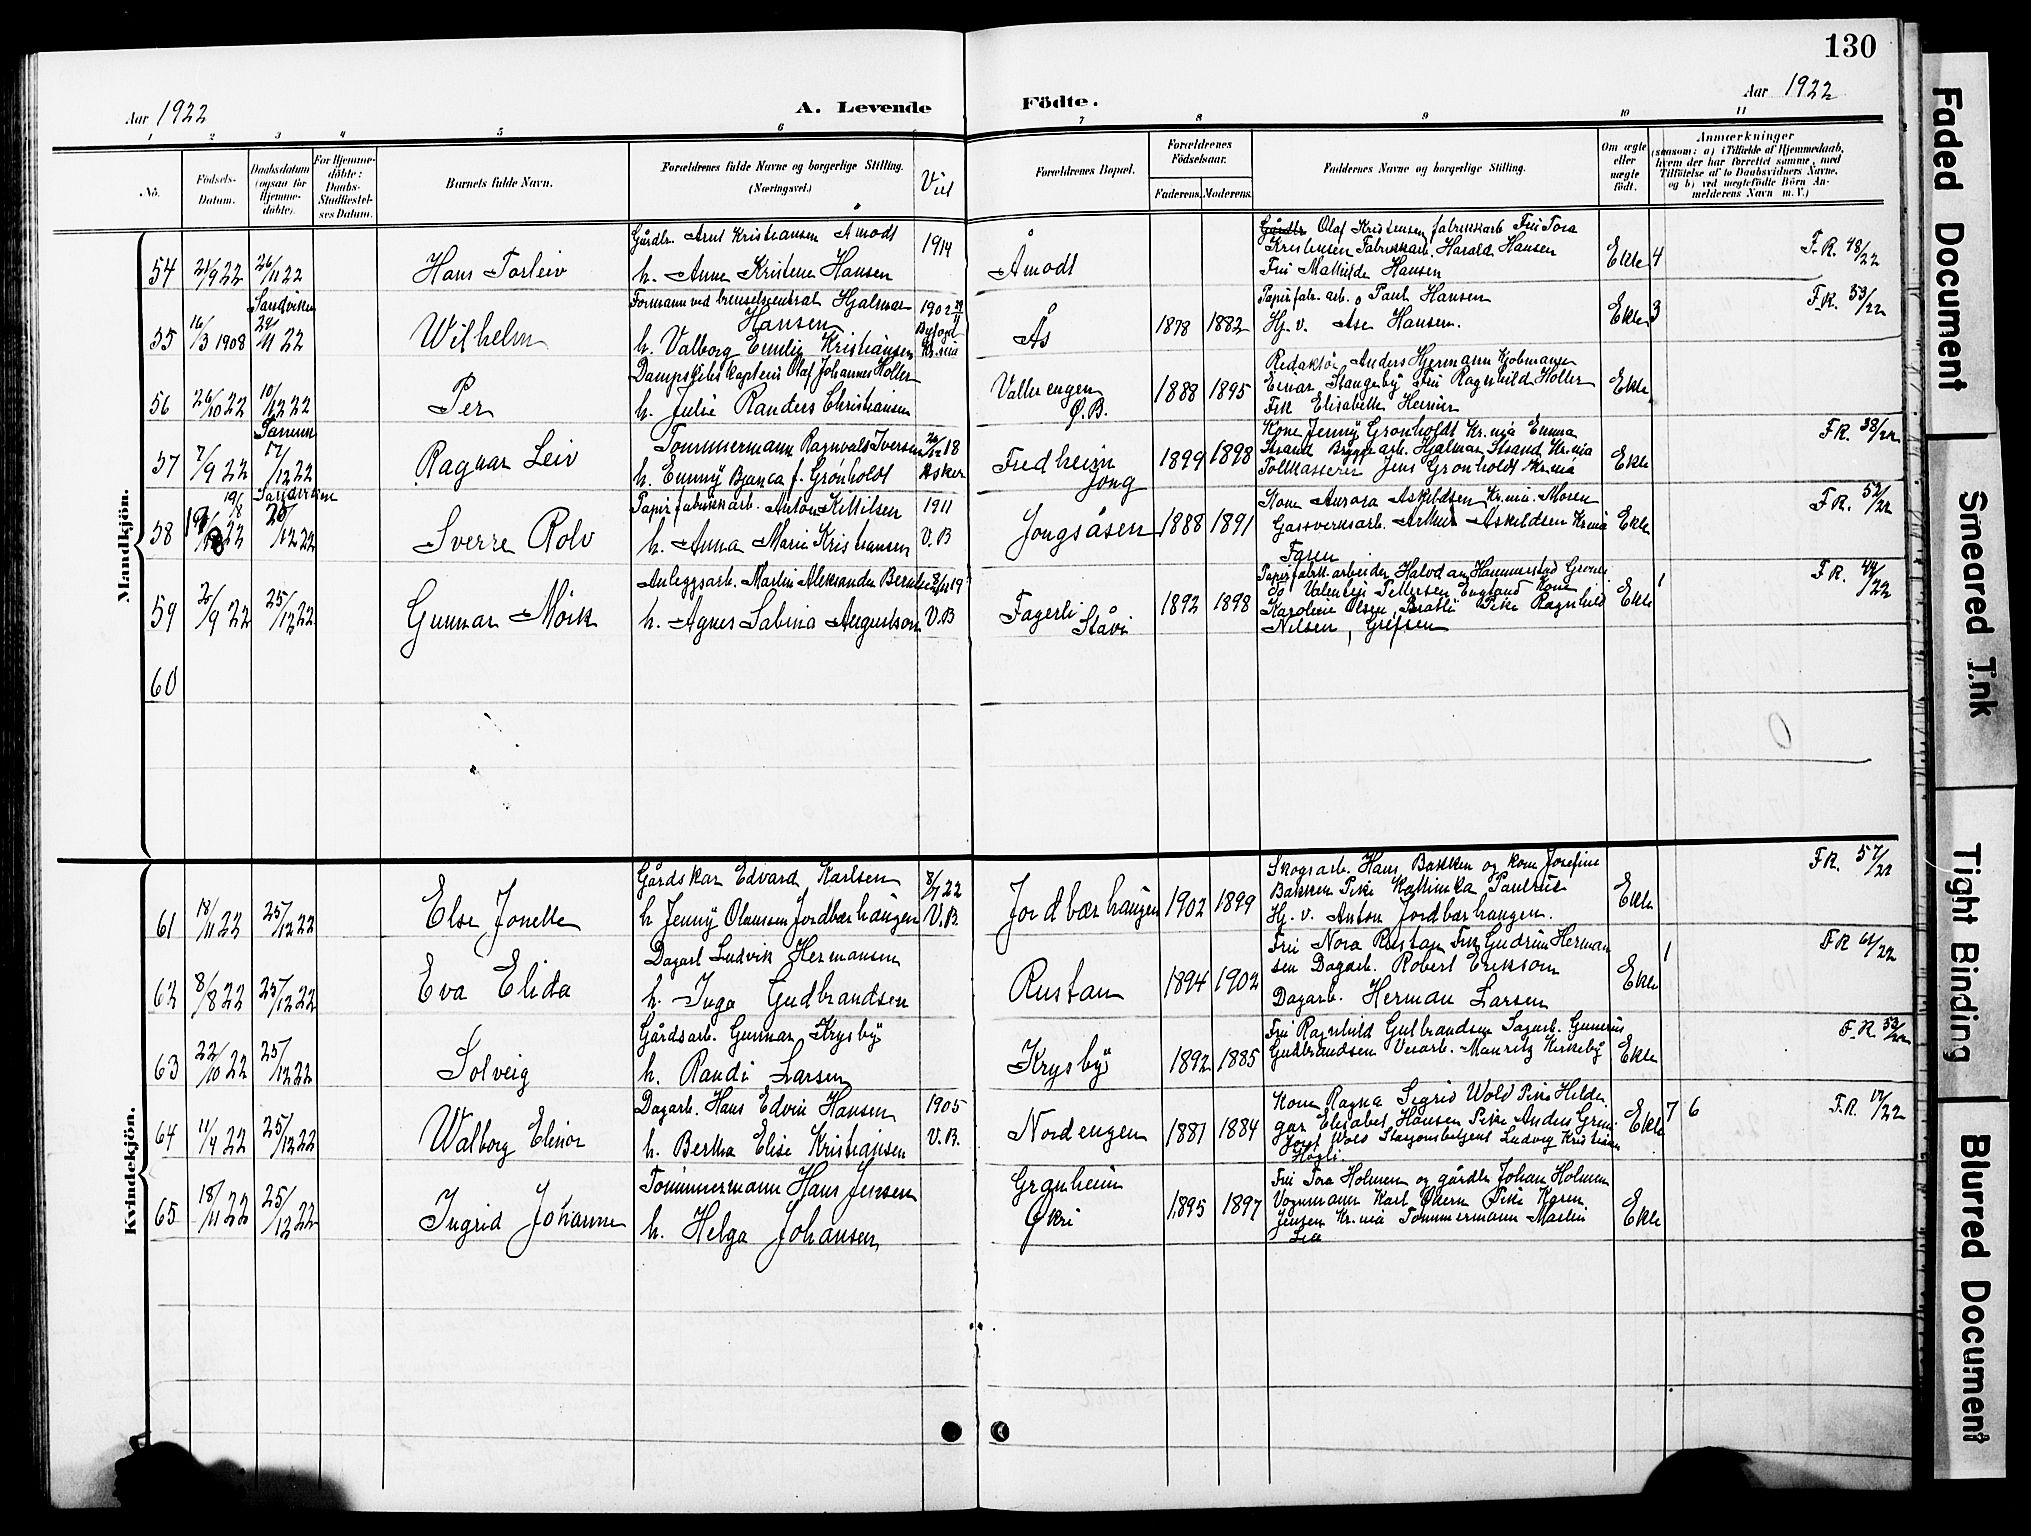 130
Aar 1922
A. Levende Födte.
Aar 1922
1 2 3 4 5 6 7 8 9 10 11
No.
Födsels-Datum.
Daabsdatum (ogsaa for Hjemme-döbte).
For Hjemme-döbte: Daabs-Stadfæstel-ses Datum.
Barnets fulde Navn.
Forældrenes fulde Navne og borgerlige Stilling. (Næringsvei.)
Viel
Forældrenes Bopæl.
Forældrenes Födselsaar.
Faderens. Moderens.
Faddernes Navne og borgerlige Stilling.
Om ægte eller uægte födt.
Anmærkninger
(saasom: a) i Tilfælde af Hjemmedaab,
hvem der har forrettet samme, med
Tilföielse af to Daabsvidners Navne,
og b) ved uægtefödte Börn An-
melderens Navn m. V.)
Mandkjön.
54 21/9 22 26/11 22 Hans Torleiv
Gårdbr. Arnt Kristiansen Åmodt
h. Anne Kristene Hansen
1914
Åmodt
Gårdbr Olaf Kristensen fabrikkarb Fru Tora
Kristensen Fabrikkarb. Harald Hansen
Fru Mathilde Hansen
Ekte 4 F.R. 48/22
55 16/3 1908 Sandviken 24/11 22 Wilhelm
Formann ved brenselscentral Hjalmar
Hansen
h. Valborg Emilie Kristiansen
1902
Kr.nia
Ås 1878 1882
Papirfabr. arb. Paul Hansen
Hj. v. Åse Hansen.
Ekte 3 F.R. 33/22
56 26/10 22 10/12 22 Per
Dampskibs kaptein Olaf Johannes Holler
h. Julie Randers Christiansen
Vallerengen Ö.B. 1888 1895
Redaktör Anders Hjermann Kjöbmann
Einar Stangeby Fru Ragnhild Holler
Frk Elisabeth
Ekte
57 7/9 22 Tanum 17/12 22 Ragnar Leiv
Tömmermann Ragnvald Iversen
h. Emmy Bjanca f. Grönholdt
18
Asker
Fredheim Jong 1899 1898
Kone Jenny Grönholdt Kr.nia Emma
Strand Bryggearb. Hjalmar Strand Kr.nia
Tollkasserer Jens Grönholdt Kr.nia
Ekte F.R. 38/22
58 19/8 22 Sandviken 25/12 22 Sverre Rolv
Papirfabrikkarb. Anton Kittilsen
h. Anna Marie Kristiansen
1911
V.B
Jongsåsen 1888 1891
Kone Aurora Askildsen Kr.nia. Moren
Gassverksarb. Arthur Askildsen Kr.nia
Faren
Ekte F.R. 52/22
59 20/9 22 25/12 22 Gunnar Mörk
Anleggsarb. Martin Aleksander
h. Agnes Sabina Augustson
19
V.B
Fagerli Stavi 1892 1898
Papirfabrk.arbeider Halvdan Hammerstad
do Valentin Pettersen England Kone
Karolene Olsen, Bratli Pike Ragnhild
Nilsen, Grefsen
Ekte 1 F.R. 44/22
60
Kvindekjön.
61 18/11 22 25/12 22 Else Jonette
Gårdskar Edvard Karlsen
h Jenny Olaussen Jordbærhaugen
8/7 22
V.B.
Jordbærhaugen 1902 1899
Skogsarb. Hans Bakken og kone Josefine
Bakken Pike Kathinka Paulsrud
Hj. v. Anton Jordbærhaugen.
Ekte F.R. 57/22
62 8/8 22 25/12 22 Eva Elida
Dagarb Ludvik Hermansen
h. Inga Gudbrandsen
Rustan 1894 1902
Fru Nora Rustan Frk Gudrun Herman
sen Dagarb. Robert Erikson
Dagarb. Herman Larsen
Ekte 1 F.R 61/22
63 22/10 22 25/12 22 Solveig
Gårdsarb. Gunnar Krysby
h. Randi Larsen
Krysby 1892 1885
Fru Ragnhild Gulbrandsen Sagarb. Gunerius
Gudbrandsen Veiarb. Mauritz Kirkeby
Ekte F.R 53/22
64 11/4 22 25/12 22 Walborg Elinor
Dagarb. Hans Edvin Hansen
h. Bertha Elise Kristiansen
1905
V.B.
Nordengen 1881 1884
Kone Ragna Sigrid Wold Pike Hilde
gar Elisabet Hansen Anders
Wold Stasjonsbetjent Ludvig Kristian
Högli.
Ekte 7 6 F.R. 17/22
65 18/11 22 25/12 22 Ingrid Johanne
Tömmermann Hans Jensen
h. Helga Johansen
Granheim Ökri 1895 1897
Fru Tora Holmen og gårdbr Johan Holmen
Vognmann Karl Ökern Pike Karen
Jensen Kr.nia Tömmermann Martin
Lia
Ekte
Faded Document
Smeared Ink
Tight Binding
Blurred Document